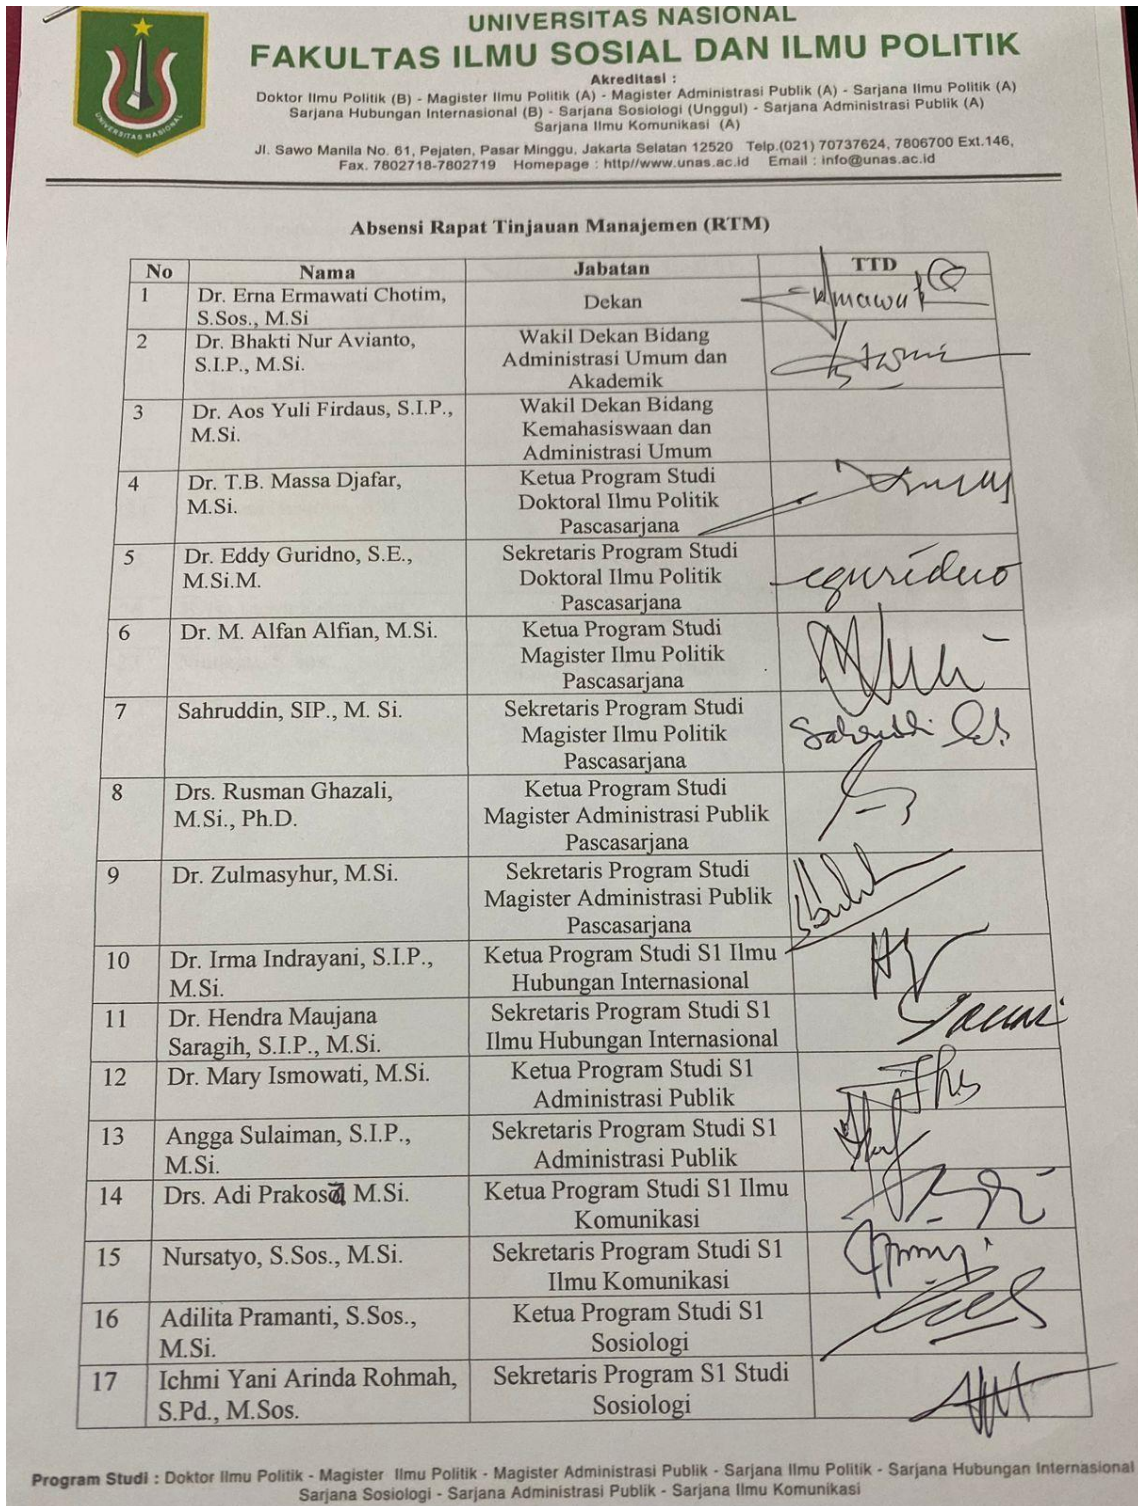 UNIVERSITAS NASIONAL
FAKULTAS ILMU SOSIAL DAN ILMU POLITIK
Akreditasi :
Doktor Ilmu Politik (B) - Magister Ilmu Politik (A) - Magister Administrasi Publik (A) - Sarjana Ilmu Politik (A)
Sarjana Hubungan Internasional (B) - Sarjana Sosiologi (Unggul) - Sarjana Administrasi Publik (A)
Sarjana Ilmu Komunikasi (A)
Jl. Sawo Manila No. 61, Pejaten, Pasar Minggu, Jakarta Selatan 12520 Telp.(021) 70737624, 7806700 Ext.146,
Fax. 7802718-7802719 Homepage : http//www.unas.ac.id Email : info@unas.ac.id
UNIVERSITAS NASIONAL
Absensi Rapat Tinjauan Manajemen (RTM)
No Nama Jabatan TTD
1 Dr. Erna Ermawati Chotim,
S.Sos., M.Si
Dekan
2 Dr. Bhakti Nur Avianto,
S.I.P., M.Si.
Wakil Dekan Bidang
Administrasi Umum dan
Akademik
3 Dr. Aos Yuli Firdaus, S.I.P.,
M.Si.
Wakil Dekan Bidang
Kemahasiswaan dan
Administrasi Umum
4 Dr. T.B. Massa Djafar,
M.Si.
Ketua Program Studi
Doktoral Ilmu Politik
Pascasarjana
5 Dr. Eddy Guridno, S.E.,
M.Si.M.
Sekretaris Program Studi
Doktoral Ilmu Politik
Pascasarjana
eguridno
6 Dr. M. Alfan Alfian, M.Si.
Ketua Program Studi
Magister Ilmu Politik
Pascasarjana
7 Sahruddin, SIP., M. Si.
Sekretaris Program Studi
Magister Ilmu Politik
Pascasarjana
8 Drs. Rusman Ghazali,
M.Si., Ph.D.
Ketua Program Studi
Magister Administrasi Publik
Pascasarjana
9 Dr. Zulmasyhur, M.Si.
Sekretaris Program Studi
Magister Administrasi Publik
Pascasarjana
10 Dr. Irma Indrayani, S.I.P.,
M.Si.
Ketua Program Studi S1 Ilmu
Hubungan Internasional
11 Dr. Hendra Maujana
Saragih, S.I.P., M.Si.
Sekretaris Program Studi S1
Ilmu Hubungan Internasional
12 Dr. Mary Ismowati, M.Si.
Ketua Program Studi S1
Administrasi Publik
13 Angga Sulaiman, S.I.P.,
M.Si.
Sekretaris Program Studi S1
Administrasi Publik
14 Drs. Adi Prakosa, M.Si.
Ketua Program Studi S1 Ilmu
Komunikasi
15 Nursatyo, S.Sos., M.Si.
Sekretaris Program Studi S1
Ilmu Komunikasi
16 Adilita Pramanti, S.Sos.,
M.Si.
Ketua Program Studi S1
Sosiologi
17 Ichmi Yani Arinda Rohmah,
S.Pd., M.Sos.
Sekretaris Program S1 Studi
Sosiologi
Program Studi : Doktor Ilmu Politik - Magister Ilmu Politik - Magister Administrasi Publik - Sarjana Ilmu Politik - Sarjana Hubungan Internasional
Sarjana Sosiologi - Sarjana Administrasi Publik - Sarjana Ilmu Komunikasi